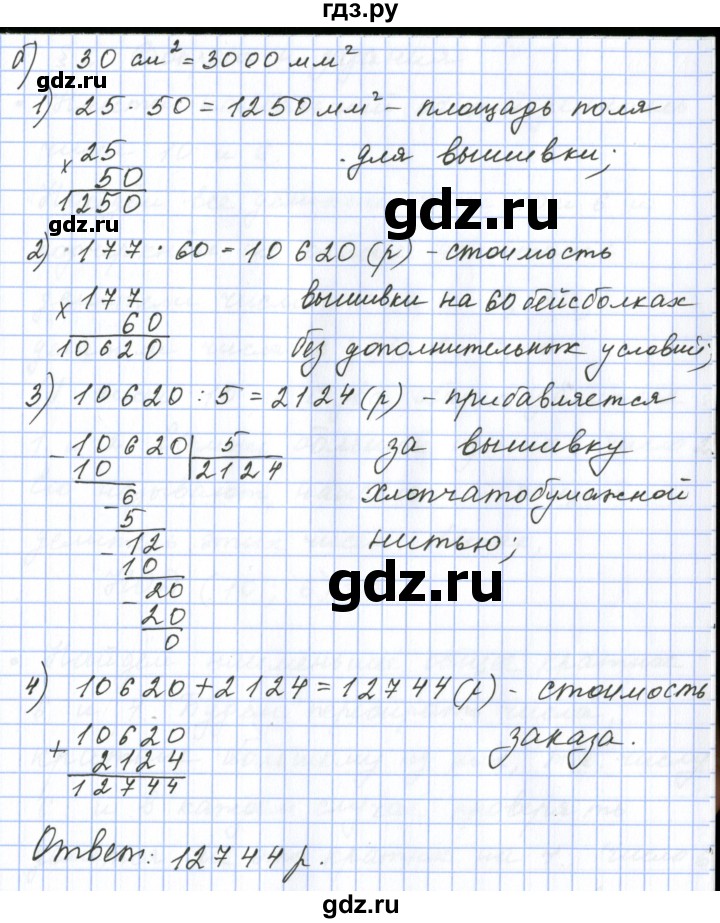 гдз.ру
б) 30 см² = 3000 мм²
gdz.ru
1) 25 · 50 = 1250 мм² – площадь поля
для вышивки;
× 25
50
1250
gdz.ru
gdz.ru
2) 177 · 60 = 10620 (р) – стоимость
вышивки на 60 бейсболках
без дополнительных условий;
× 177
60
10620
3) 10620 : 5 = 2124 (р) – прибавляется
за вышивку
хлопчатобумажной
нитью;
– 10620 | 5
10 2124
– 6
5
– 12
10
– 20
20
0
gdz.ru
4) 10620 + 2124 = 12744 (р) – стоимость
заказа.
+ 10620
2124
12744
Ответ: 12744 р.
gdz.ru
gdz.ru